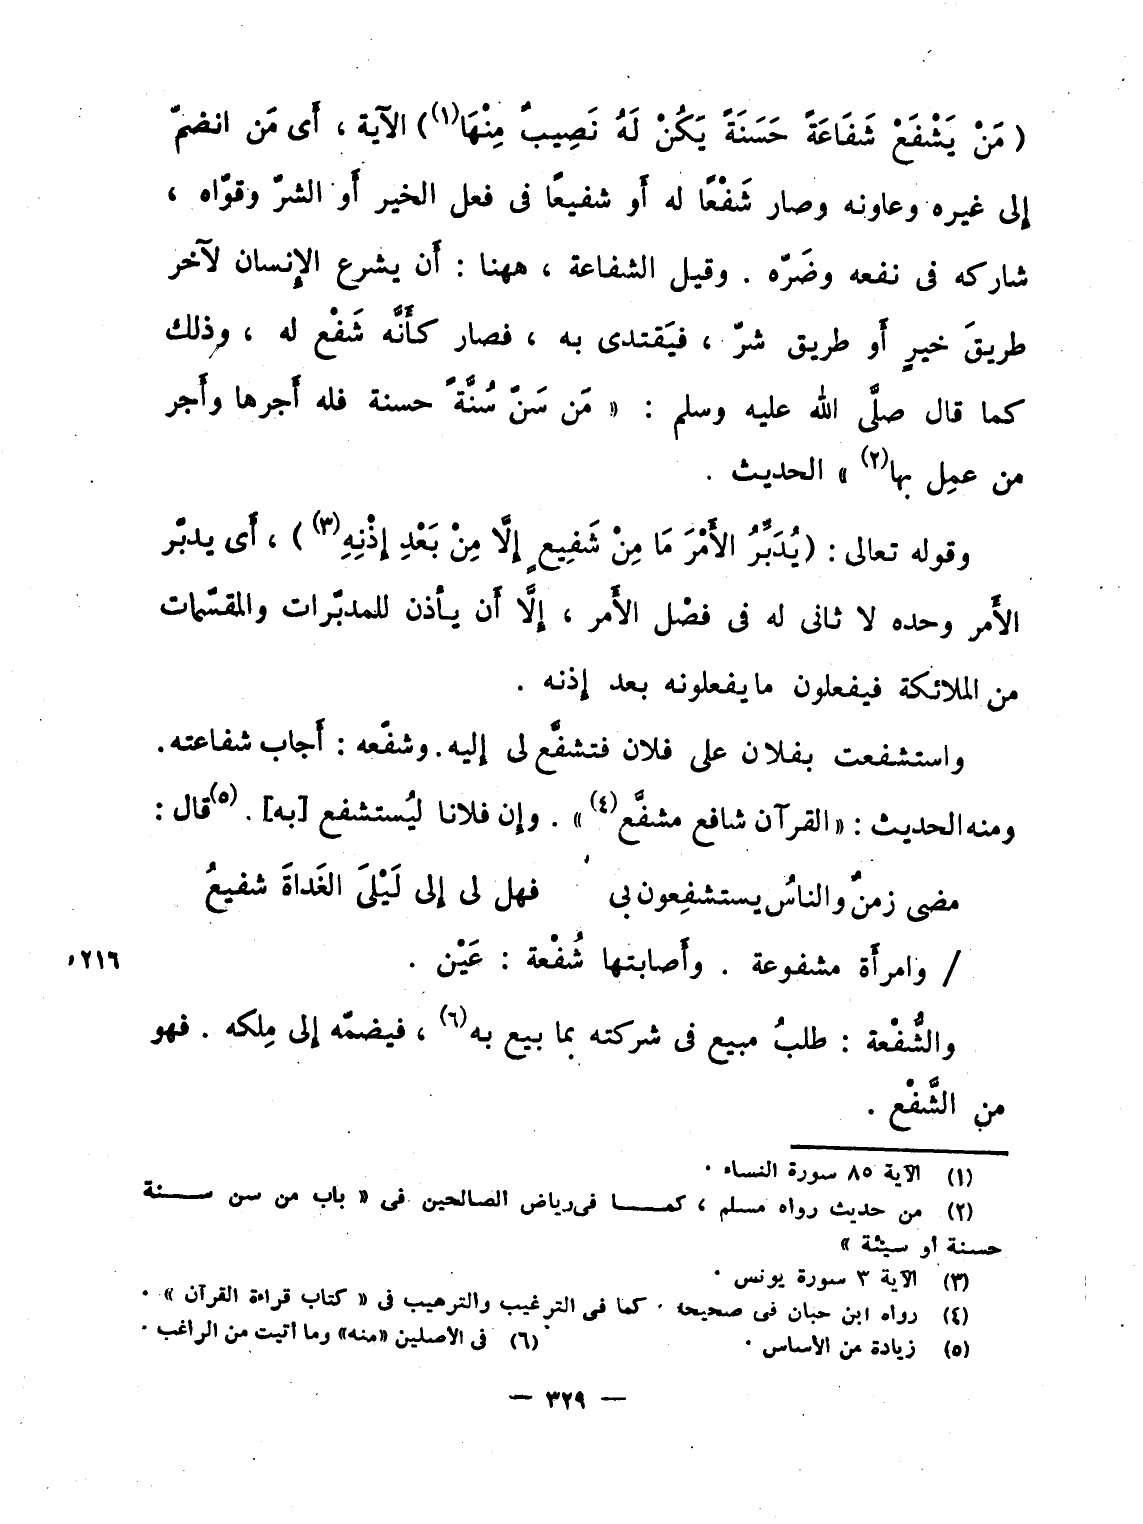 ( مَنْ يَشْفَعْ شَفَاعَةً حَسَنَةً يَكُنْ لَهُ نَصِيبٌ مِنْهَا(١) ) الآية ، أَى مَن انضمّ
إلى غيره وعاونه وصار شَفْعًا له أَو شفيعًا فى فعل الخير أَو الشرّ وقوّاه ،
شاركه فى نفعه وضَرّه . وقيل الشفاعة ، ههنا : أَن يشرع الإنسان لآخر
طريقَ خيرٍ أَو طريق شرّ ، فيَقتدى به ، فصار كأَنَّه شَفْع له ، وذلك
كما قال صلَّى الله عليه وسلم : « مَن سَنّ سُنَّةً حسنة فله أَجرها وأَجر
من عمِل بها(٢) » الحديث .
وقوله تعالى : ( يُدَبِّرُ الأَمْرَ مَا مِنْ شَفِيعٍ إِلَّا مِنْ بَعْدِ إِذْنِهِ(٣) ) ، أَى يدبّر
الأَمر وحده لا ثانى له فى فصْل الأَمر ، إِلَّا أَن يأذن للمدبّرات والمقسّمات
من الملائكة فيفعلون ما يفعلونه بعد إذنه .
واستشفعت بفلان على فلان فتشفَّع لى إليه . وشفّعه : أَجاب شفاعته .
ومنه الحديث : « القرآن شافع مشفَّع(٤) » . وإن فلانا ليُستشفع [به] . (٥)قال :
مضى زمنٌ والناسُ يستشفِعون بى فهل لى إلى لَيْلَىَ الغَداةَ شفيعُ
/ وامرأَة مشفوعة . وأَصابتها شُفْعة : عَيْن . ٢١٦ء
والشُّفْعة : طلبُ مبيع فى شركته بما بيع به(٦) ، فيضمّه إلى مِلكه . فهو
من الشَّفْع .
(١) الآية ٨٥ سورة النساء .
(٢) من حديث رواه مسلم ، كمـــا فى رياض الصالحين فى « باب من سن ســنة
حسنة أو سيئة »
(٣) الآية ٣ سورة يونس .
(٤) رواه ابن حبان فى صحيحه . كما فى الترغيب والترهيب فى « كتاب قراءة القرآن » .
(٥) زيادة من الأساس . (٦) فى الأصلين «منه» وما أتيت من الراغب .
— ٣٢٩ —